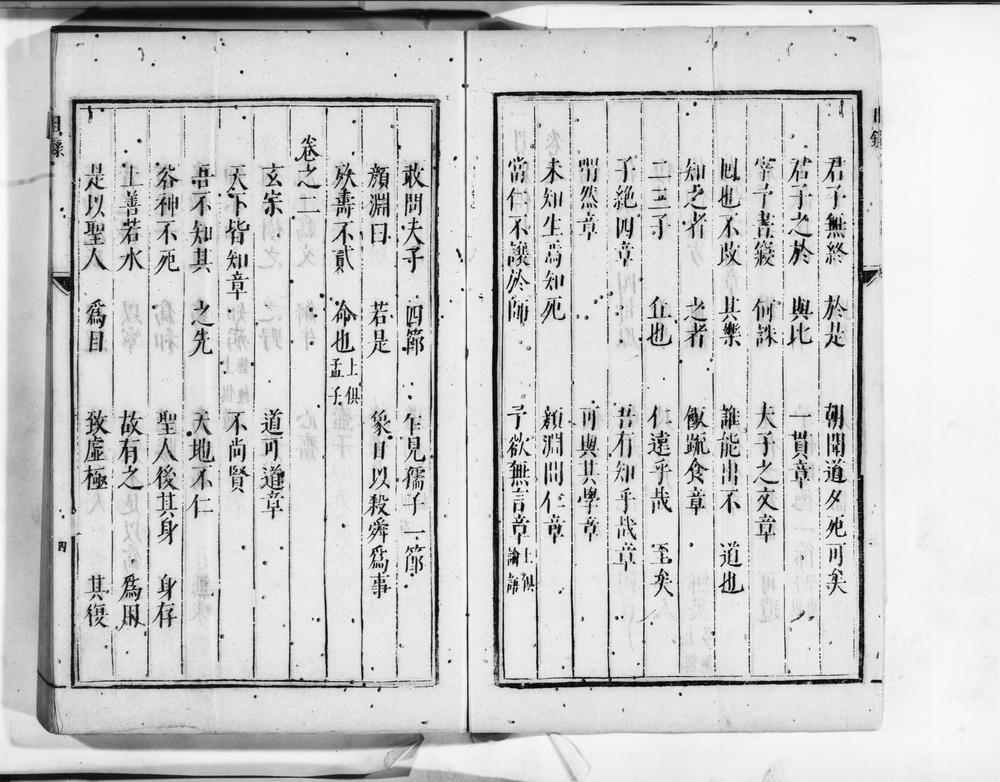 君子無終　於是　朝聞道夕死可矣
君子之於　與比　一貫章
宰予晝寢　何誅　夫子之文章
回也不改　其樂　誰能出不　道也
知之者　之者　飯疏食章
二三子　丘也　仁遠乎哉　至矣
子絕四章　吾有知乎哉章
喟然章　可與共學章
未知生焉知死　顏淵問仁章
當仁不讓於師　予欲無言章上俱論語
敢問夫子　四節　乍見孺子一節
顏淵曰　若是　象日以殺舜爲事
殀壽不貳　命也上俱孟子
卷之二
玄宗　道可道章
天下皆知章　不尚賢
吾不知其　之先　天地不仁
谷神不死　聖人後其身　身存
上善若水　故有之　爲用
是以聖人　爲目　致虛極　其復
目錄
四